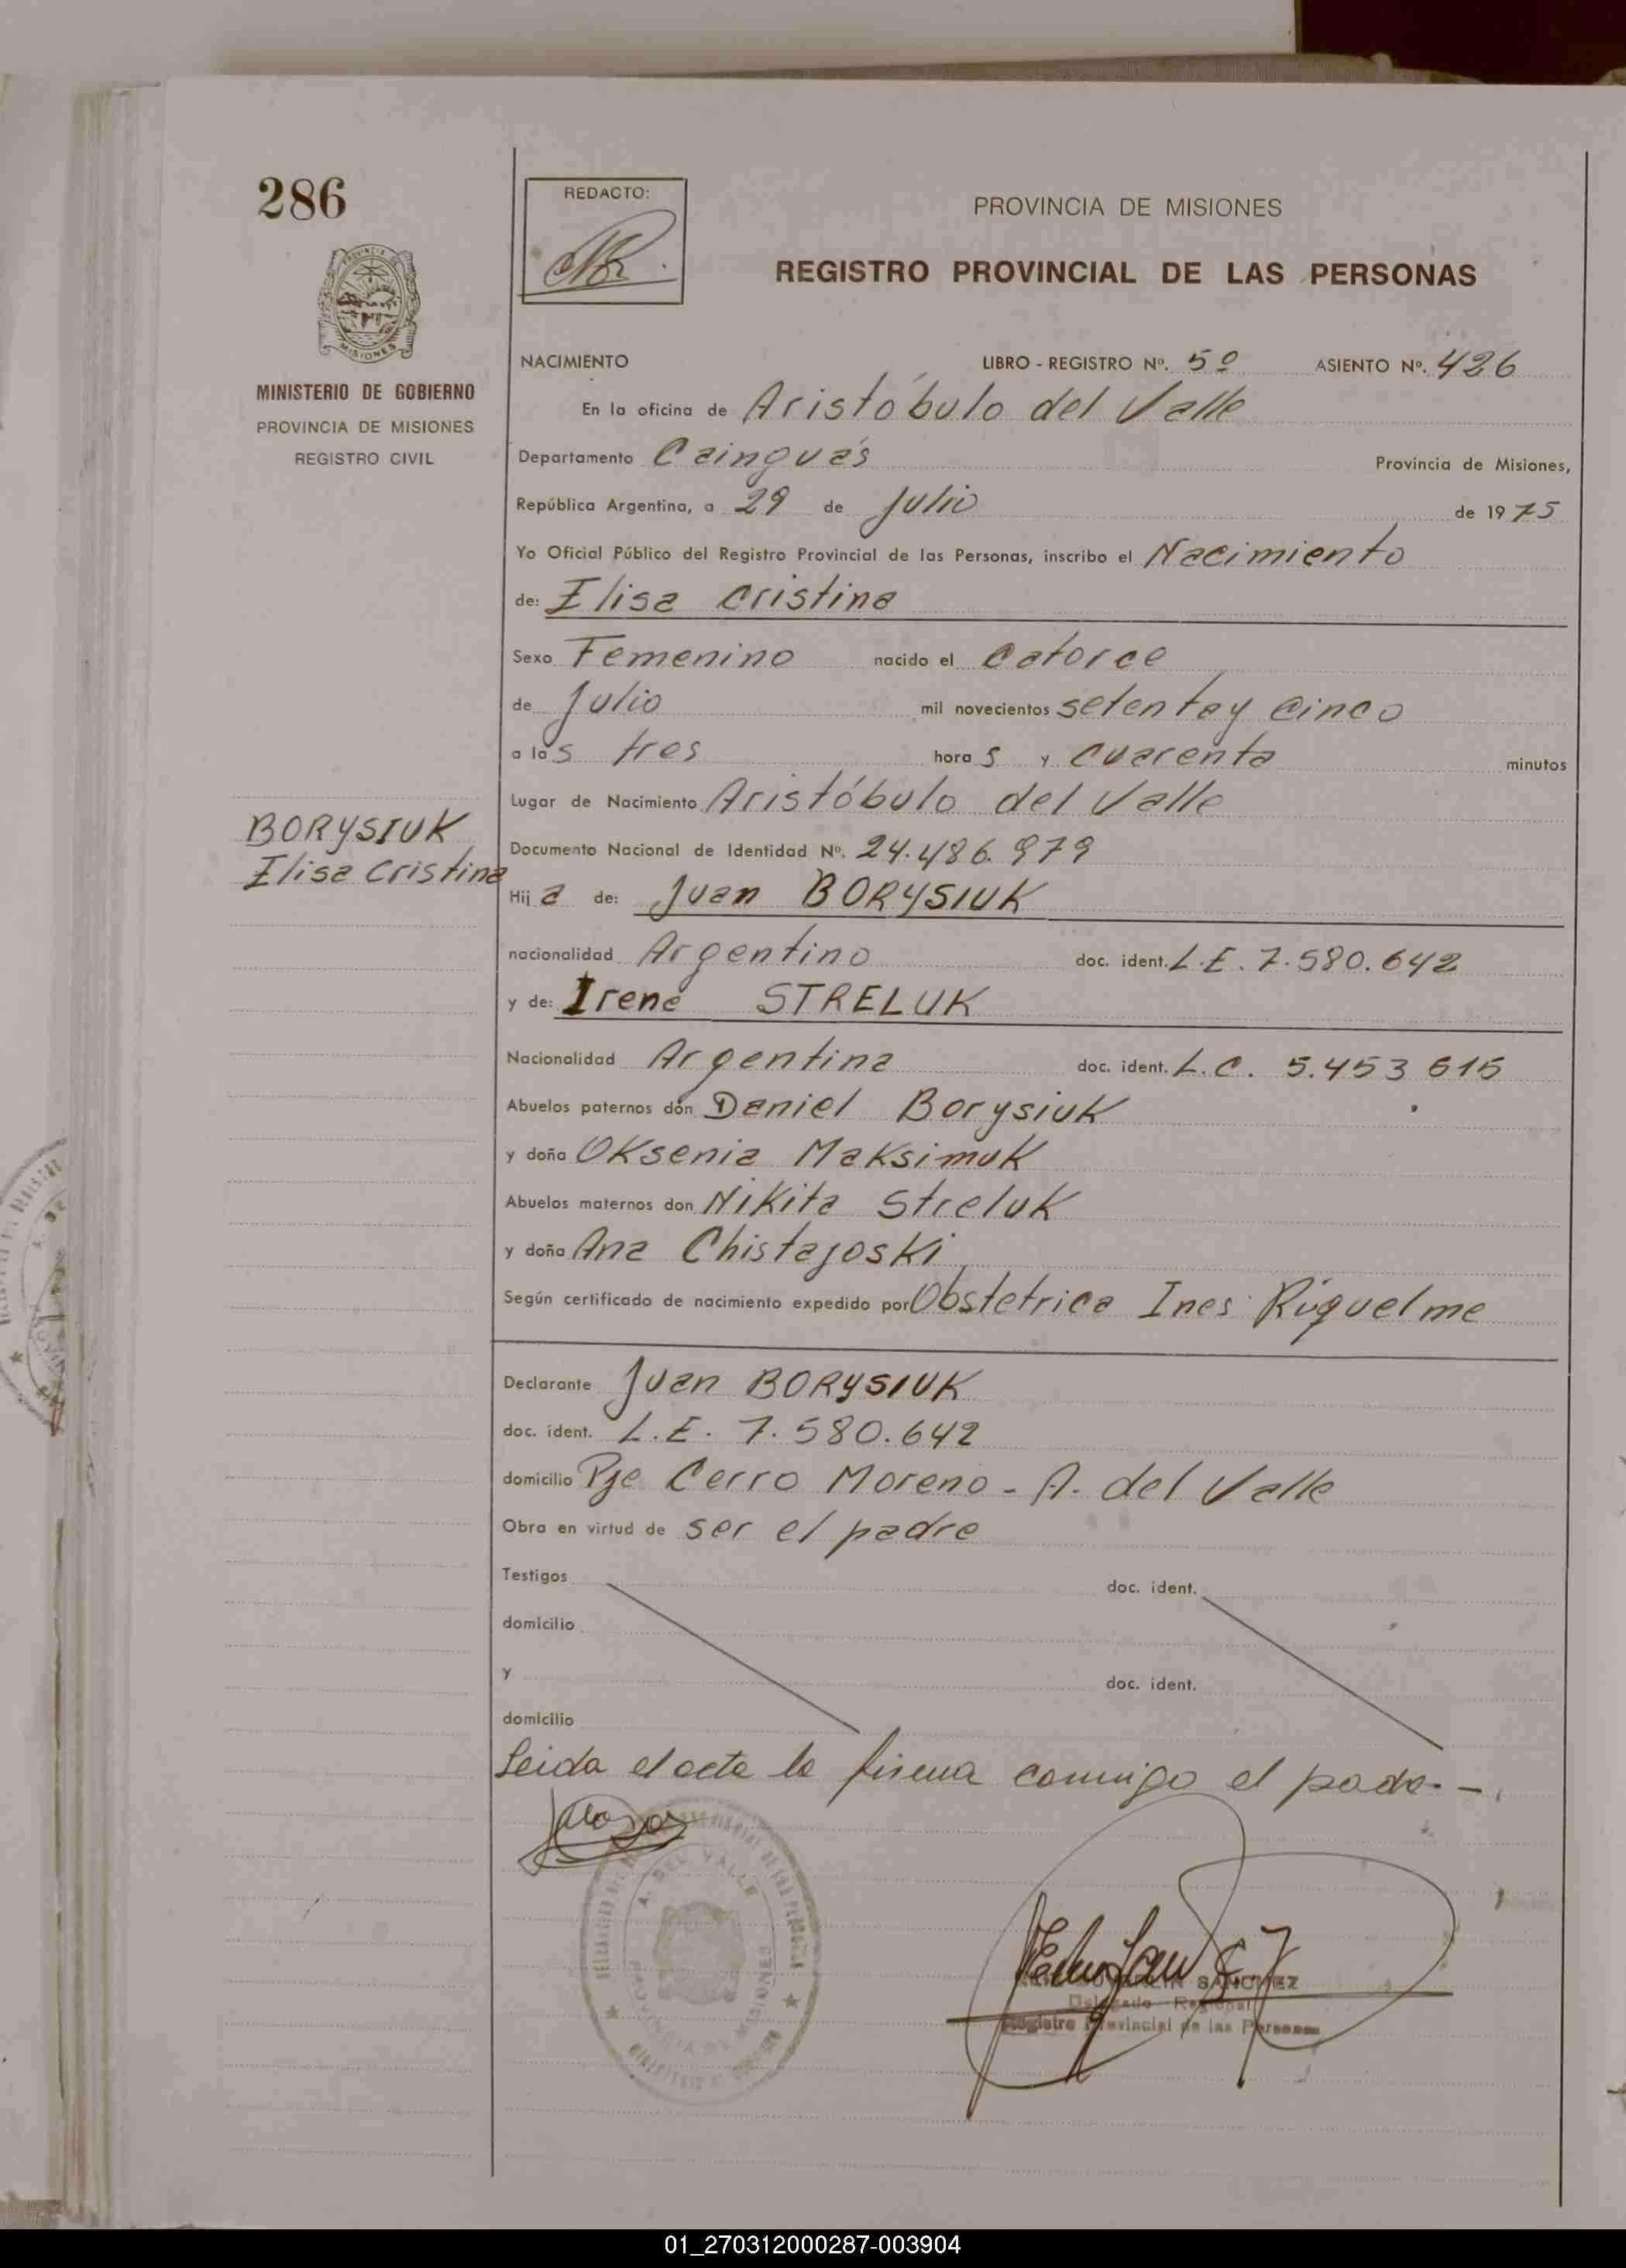 286
REDACTO:
PROVINCIA DE MISIONES
REGISTRO PROVINCIAL DE LAS PERSONAS
MINISTERIO DE GOBIERNO
PROVINCIA DE MISIONES
REGISTRO CIVIL
NACIMIENTO LIBRO - REGISTRO Nº. 5º ASIENTO Nº. 426
En la oficina de Aristóbulo del Valle
Departamento Cainguás Provincia de Misiones,
República Argentina, a 29 de Julio de 1975
Yo Oficial Público del Registro Provincial de las Personas, inscribo el Nacimiento
de: Elisa Cristina
Sexo Femenino nacido el Catorce
de Julio mil novecientos setenta y cinco
a las tres horas y cuarenta minutos
Lugar de Nacimiento Aristóbulo del Valle
BORYSIUK
Elisa Cristina
Documento Nacional de Identidad Nº. 24.486.979
Hija de: Juan BORYSIUK
nacionalidad Argentino doc. ident. L.E. 7.580.642
y de: Irene STRELUK
Nacionalidad Argentina doc. ident. L.C. 5.453 615
Abuelos paternos don Daniel Borysiuk
y doña Oksenia Maksimuk
Abuelos maternos don Nikita Streluk
y doña Ana Chistajoski
Según certificado de nacimiento expedido por Obstetrica Ines Riquelme
Declarante Juan BORYSIUK
doc. ident. L.E. 7.580.642
domicilio Pje Cerro Moreno - A. del Valle
Obra en virtud de ser el padre
Testigos doc. ident.
domicilio
y doc. ident.
domicilio
Leida el acta la firma conmigo el padre.-
A. DEL VALLE
PROVINCIA DE MISIONES
SANCHEZ
Delegado Regional
Registro Provincial de las Personas
01_270312000287-003904